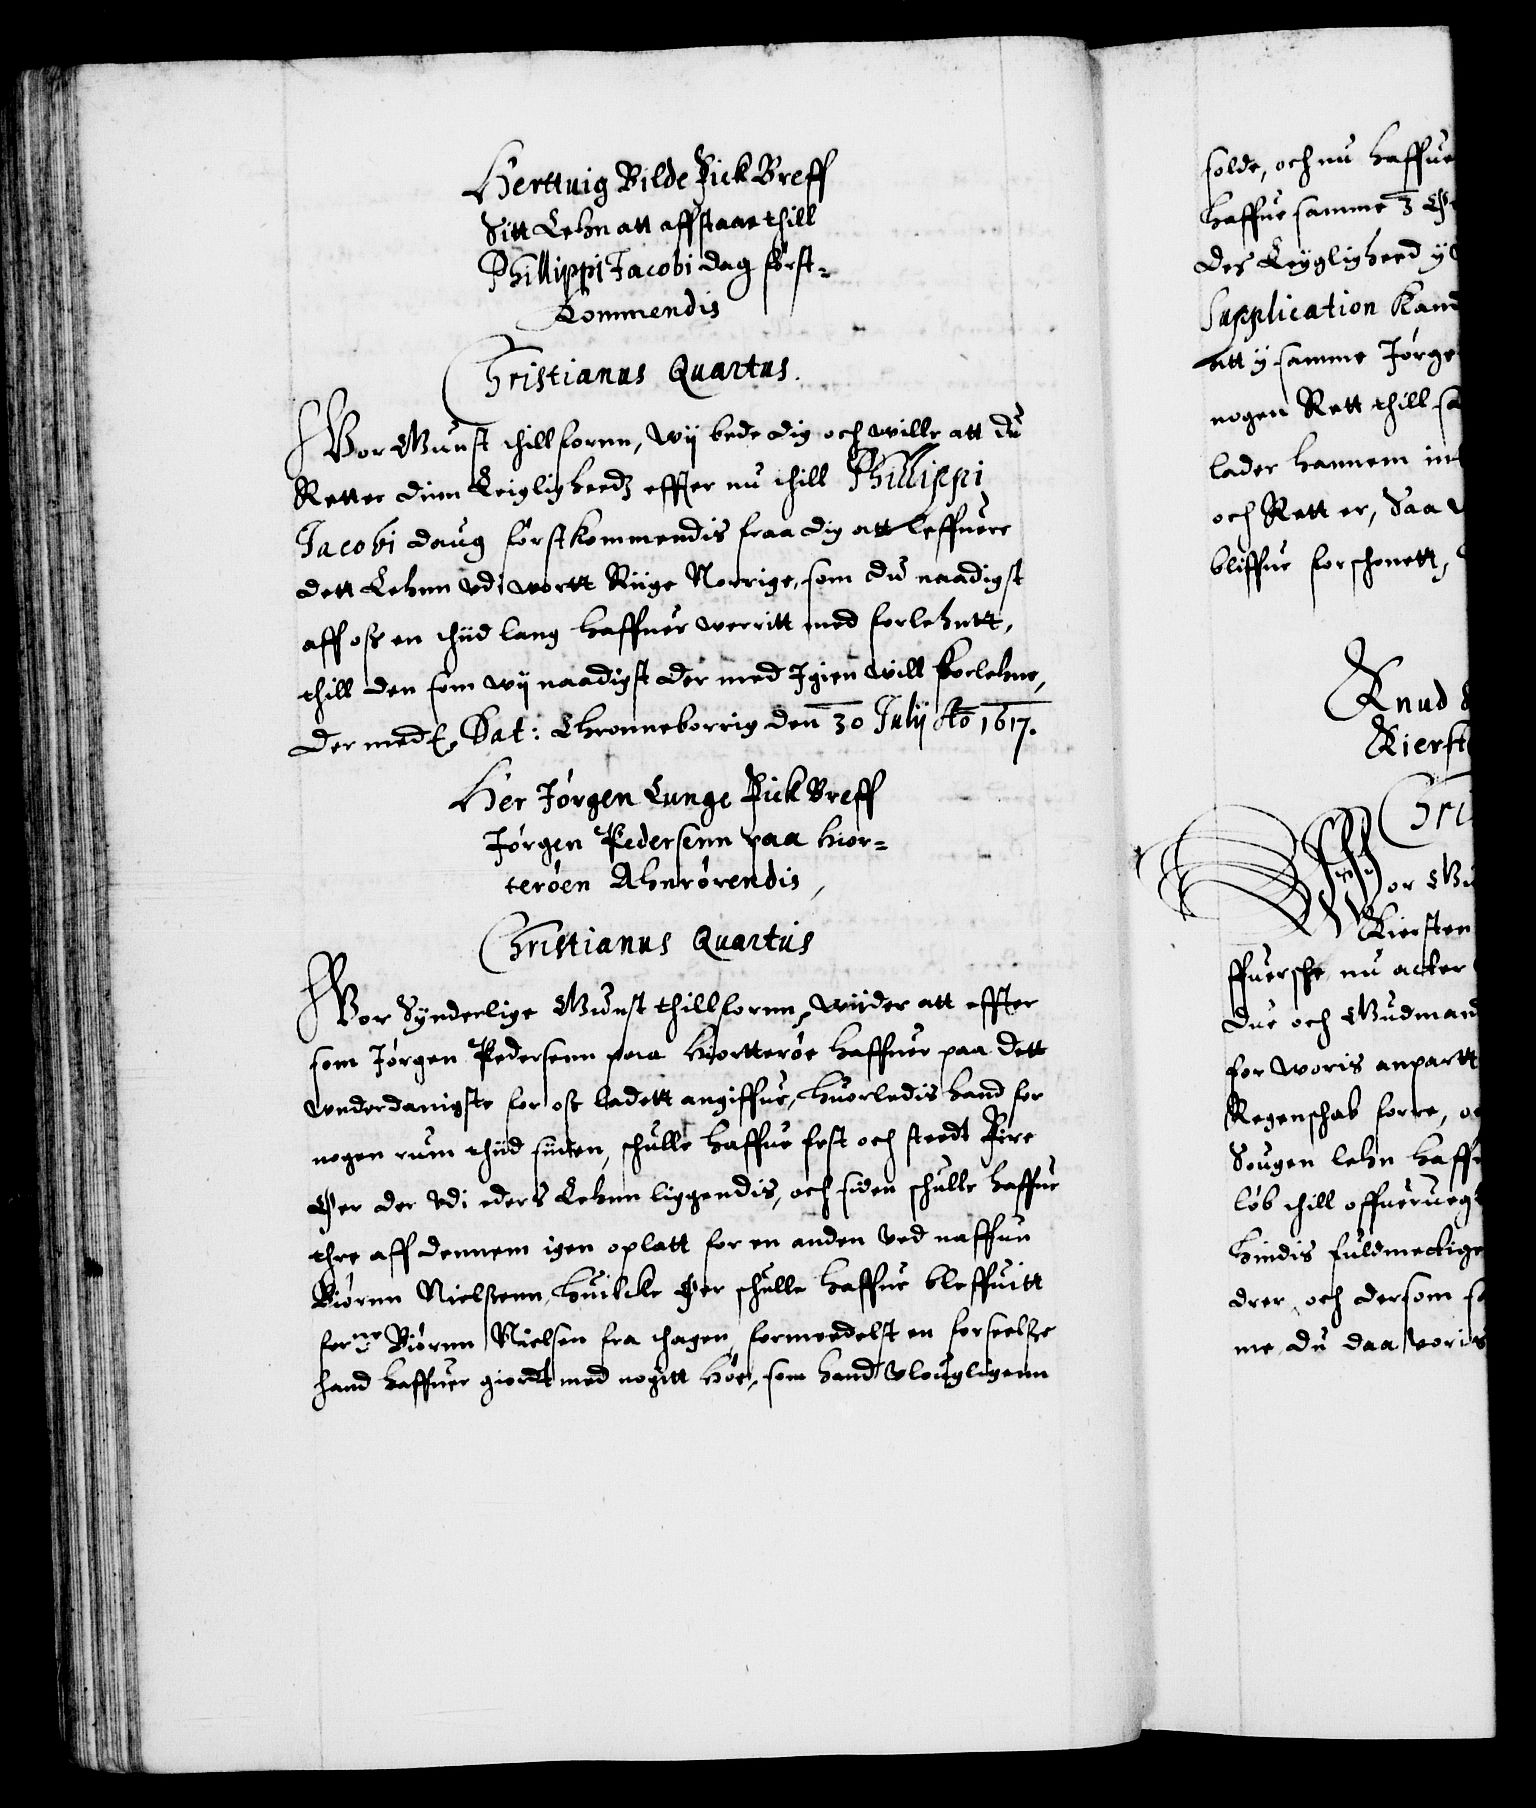 Herttuig Bilde Fick Breff
Sitt Lehn att affstaae thill
Phillippi Jacobi dag først-
Kommendis
Christianus Quartus.
Vor Gunst thillfornn, wij bede dig och wille att du
Retter dinn Leigligheedz effter nu thill Phillippi
Jacobi daug førstkommendis fraa dig att leffuere
dett Lehnn vdi wortt Riige Norrige, som du naadigst
aff oss en thiid lang haffuer werritt med forlehntt,
thill den som wij naadigst der med Igien will forlehne,
der med Dat: Chronneborrig den 30 Julij Ao 1617.
Her Jørgen Lunge Fick Breff
Jørgen Pedersenn paa Hior-
terøen Ahnrørendis,
Christianus Quartus
Vor Synderlige Gunst thillfornn, wiider att effter
som Jørgen Pedersenn paa Hiortterøe haffuer paa dett
wnderdanigste for oss ladett angiffue, huorledis hand for
nogen rum thiid siiden, schulle haffue fest och steedt Fire
Øer der vdi eders Lehnn liggendis, och siden schulle haffue
thre aff dennem igen oplatt for en anden ved naffun
Biørnn Nielssenn, huilcke Øer schulle haffue bleffuitt
forne Biørnn Nielsen fra thagen, formedelst en forseelsse
hand haffuer giordt med nogitt Høe, som hand vlougligenn
solde, och nu haffue
haffue samme 3 Ø
des Leyglighed y
Supplication Kand
att y samme Jørge
nogen Rett thill sa
lader hannem int
och Rett er, Saa
bliffue forschonett,
Knud
Kierst
Chri
Vor Gu
Kiersten
ffuersche nu atter
due och Gudmand
for woris anpartt
Regenschab forre, oc
Sougen lehn haff
løb thill offueruegt
hindis fuldmectige
drer, och dersom so
me du daa voris